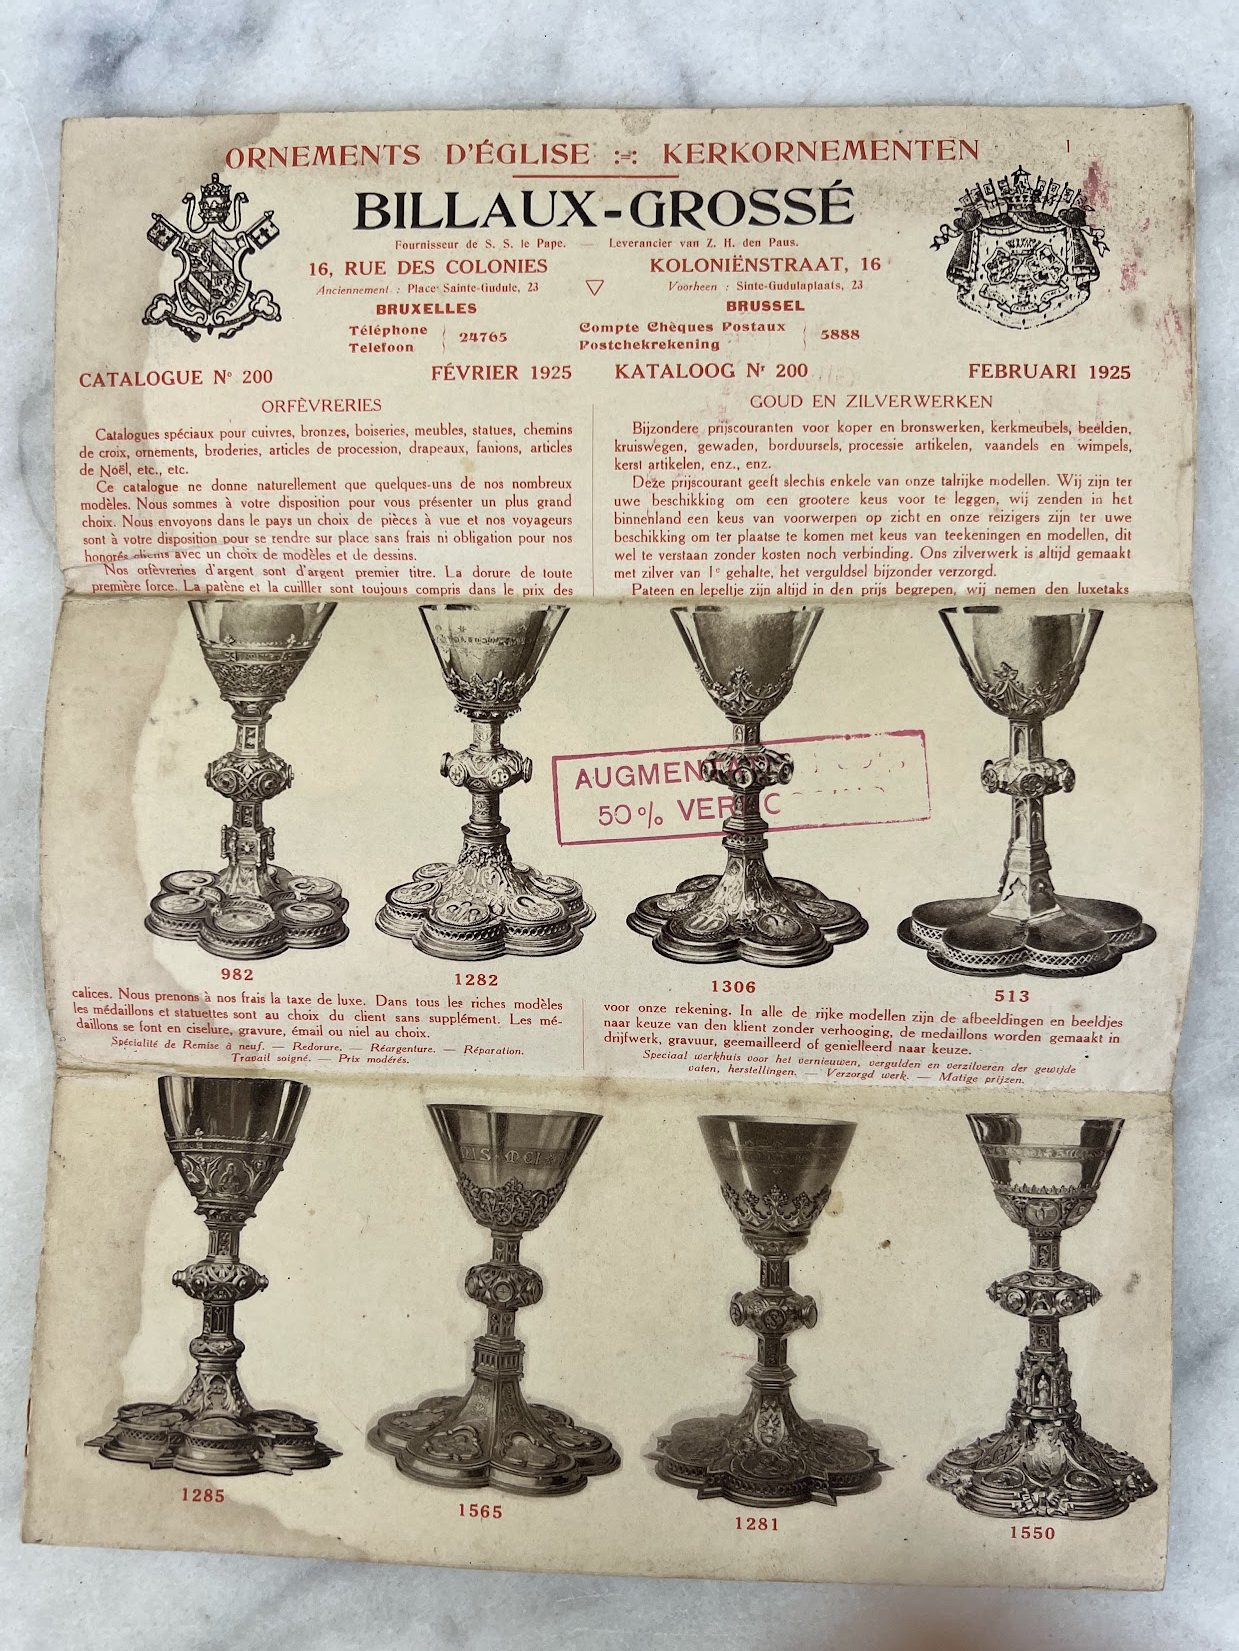 ORNEMENTS D'ÉGLISE :-: KERKORNEMENTEN
I
BILLAUX-GROSSÉ
Fournisseur de S. S. le Pape. — Leverancier van Z. H. den Paus.
16, RUE DES COLONIES
Anciennement : Place Sainte-Gudule, 23
BRUXELLES
KOLONIËNSTRAAT, 16
Voorheen : Sinte-Gudulaplaats, 23
BRUSSEL
Téléphone
Telefoon
24765
Compte Chèques Postaux
Postchekrekening
5888
CATALOGUE No 200 FÉVRIER 1925
KATALOOG Nr 200 FEBRUARI 1925
ORFÈVRERIES
Catalogues spéciaux pour cuivres, bronzes, boiseries, meubles, statues, chemins
de croix, ornements, broderies, articles de procession, drapeaux, fanions, articles
de Noël, etc., etc.
Ce catalogue ne donne naturellement que quelques-uns de nos nombreux
modèles. Nous sommes à votre disposition pour vous présenter un plus grand
choix. Nous envoyons dans le pays un choix de pièces à vue et nos voyageurs
sont à votre disposition pour se rendre sur place sans frais ni obligation pour nos
honorés clients avec un choix de modèles et de dessins.
Nos orfèvreries d'argent sont d'argent premier titre. La dorure de toute
première force. La patène et la cuiller sont toujours compris dans le prix des
GOUD EN ZILVERWERKEN
Bijzondere prijscouranten voor koper en bronswerken, kerkmeubels, beelden,
kruiswegen, gewaden, borduursels, processie artikelen, vaandels en wimpels,
kerst artikelen, enz., enz.
Deze prijscourant geeft slechts enkele van onze talrijke modellen. Wij zijn ter
uwe beschikking om een grootere keus voor te leggen, wij zenden in het
binnenland een keus van voorwerpen op zicht en onze reizigers zijn ter uwe
beschikking om ter plaatse te komen met keus van teekeningen en modellen, dit
wel te verstaan zonder kosten noch verbinding. Ons zilverwerk is altijd gemaakt
met zilver van 1e gehalte, het verguldsel bijzonder verzorgd.
Pateen en lepeltje zijn altijd in den prijs begrepen, wij nemen den luxetaks
AUGMENTAT
50% VER
982
1282
1306
513
calices. Nous prenons à nos frais la taxe de luxe. Dans tous les riches modèles
les médaillons et statuettes sont au choix du client sans supplément. Les mé-
daillons se font en ciselure, gravure, émail ou niel au choix.
Spécialité de Remise à neuf. — Redorure. — Réargenture. — Réparation.
Travail soigné. — Prix modérés.
voor onze rekening. In alle de rijke modellen zijn de afbeeldingen en beeldjes
naar keuze van den klient zonder verhooging, de medaillons worden gemaakt in
drijfwerk, gravuur, geemailleerd of genielleerd naar keuze.
Speciaal werkhuis voor het vernieuwen, vergulden en verzilveren der gewijde
vaten, herstellingen. — Verzorgd werk. — Matige prijzen.
1285
1565
1281
1550